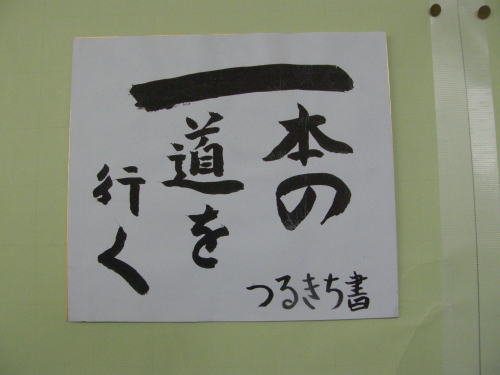 一本の
道を
行く
つるきち書